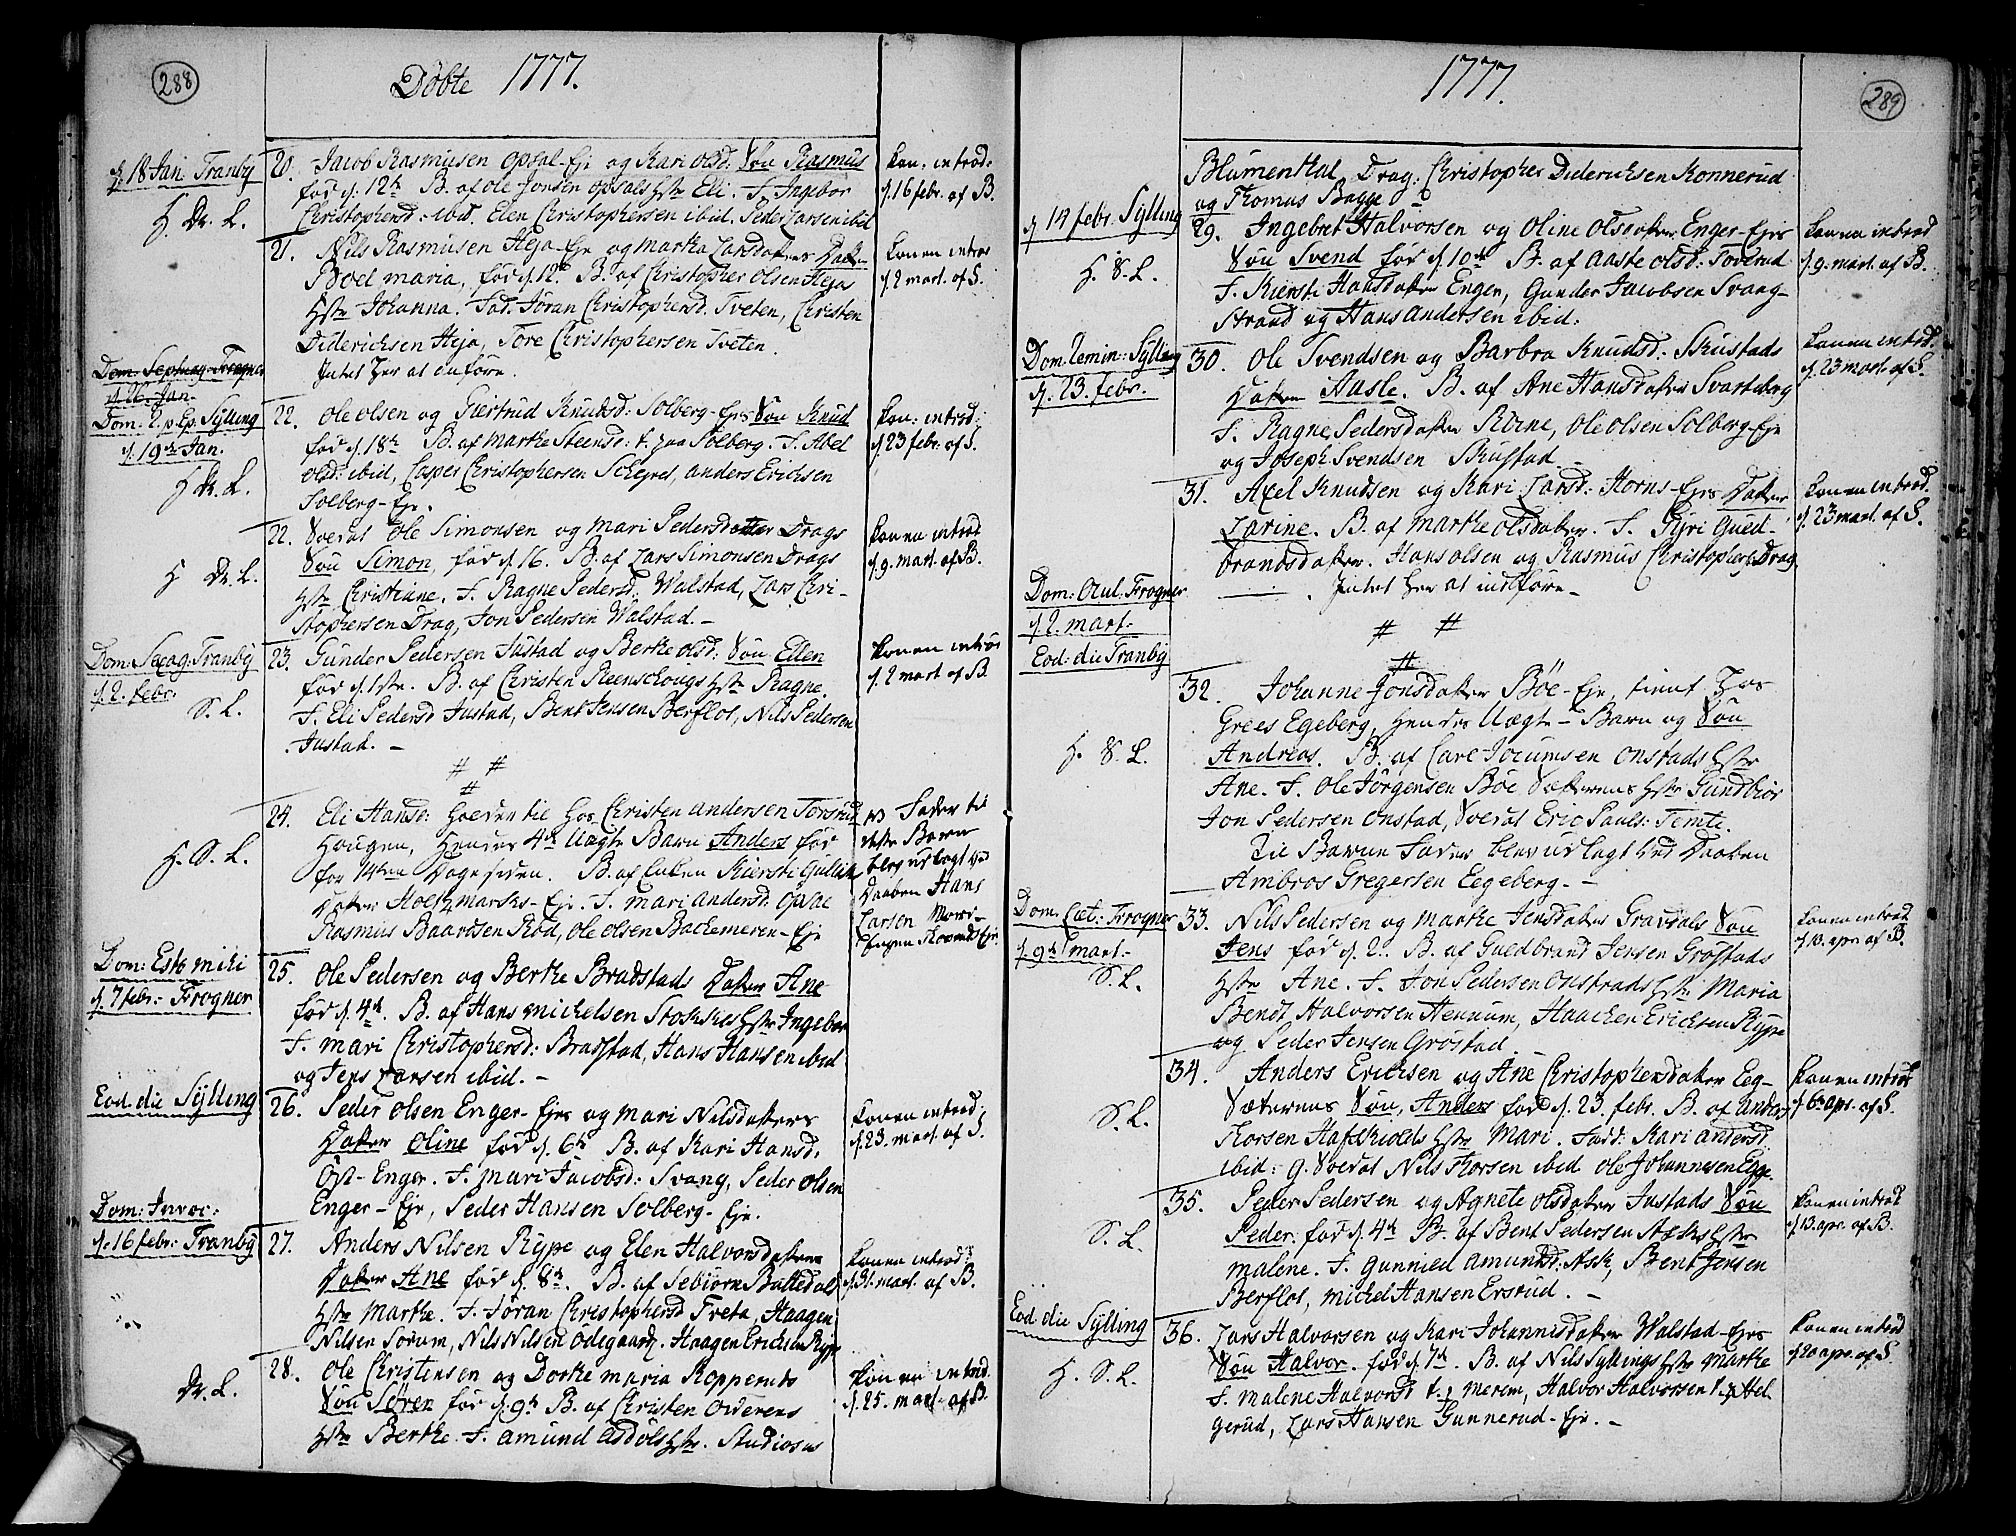 288
Döbte 1777.
d. 18 Jan Tranby
H. Dr. L.
20. Jacob Rasmusen opsal-Eje og Kari olsd: Søn Rasmus
fød d. 12te B. af ole Jonsen opsals hstr Eli. F. Ingebor
Christophersd: ibid. Elen Christophersen ibid. Peder Larsen ibid
Kon. introd:
d. 16 febr. af B.
21. Nils Rasmusen Heja-Eje og martha Larsdatters Datter
Boel maria, fød d. 12te B. af Christopher olsen Hejas
hstr Johanna. Fad. Jøran Christophersd. Tveten, Christen
Diderichsen Heja, Tore Christophersen Tveten.
Konen introd
d. 2 mart. af S.
Dom. Septuag. Frogner
d. 26. Jan.
Intet her at enføre.
Dom. 2. p. Ep. Sylling
d. 19de Jan.
H Dr. L.
22. ole olsen og Giertrud Knudsd: Solberg-Ejes Søn Knud
fød d. 18te B. af Marthe Steensd: t. paa Solberg. F. Abel
olsd: ibid, Casper Christophersen anders Erichsen
Solberg-Eje.
Kon: introd:
d. 23 febr. af S.
H Dr. L.
22. Soldat Ole Simonsen og Mari Pedersdatter Drags
Søn Simon, fød d. 16. B. af Lars Simonsen Drags
hstr Christiane. F. Ragne Pedersd: Walstad, Lars Chri-
stophersen Drag, Jon Pedersen Walstad. -
Konen introd
d. 9. mart. af B.
Dom. Sexag. Tranby
d. 2. febr.
S. L.
23. Gunder Pedersen Justad og Berthe olsd: Søn Ellen
fød d. 1ste. B. af Christen Reenschougs hstr Ragne.
F. Eli Pedersd Justad, Bent Jensen Berflot, Nils Pedersen
Justad. -
Konen introd
d. 2 mart af B.
# #
#
H. S. L.
24. Eli Hansd: hos Christen andersen Torsrud
Hougen, hendes 4de Uægte Barn Anders fød
for 14ten Dage siden. B. af Enken Kiersti Gullich
datter Hoel marks-Eje. F. mari andersd: Opsae
Rasmus Baardsen Rød, ole olsen Backemeren-Eje
NB Fader til
dette Barn
blev udlagt ved
Daaben Hans
Larsen
Dom: Esto mihi
d. 7 febr. Frogner
25. ole Pedersen og Berthe Bradstads Datter Ane
fød d. 4de. B. af Hans michelsen Stokkes hstr Ingebor
F. mari Christophersd: Bradstad, Hans Hansen ibid
og Jens Larsen ibid. -
Eod. die Sylling
26. Peder olsen Enger-Ejes og mari Nilsdatters
Datter oline fød d. 6te B. af Kari Hansd:
Øst-Enger. F. mari Jacobsd: Svang, Peder olsen
Enger-Eje, Peder Hansen Solberg-Eje.
Konen introd:
d. 23. mart. af S.
Dom: Invoc:
d. 16 febr: Tranby
27. Anders Nilsen Rype og Elen Halvorsdatters
Datter Ane fød d. 8de. B. af Sebiørn Battedals
hstr Marthe. F. Jøran Christophersd Tveta, Haagen
Nilsen Sørum, Nils Nilsen ødegaard, Haagen Erichsen Rype
Konen introd:
d. 31. mart. af B.
Dr. L.
28. ole Christensen og Dorthe maria Kopperuds
Søn Søren fød d. 9de B. af Christen orderens
hstr Berthe. F. amund hstr. Studiosus
Konen introd.
d. 25. mart. af B.
289
1777.
Blumenthal, Drag. Christopher Diderichsen Konnerud
og Thomas Bagge
d. 14 febr. Sylling
H. S. L.
29. Ingebret Halvorsen og oline olsdatter Enger-Ejes
Søn Svend fød d. 10de B. af Aaste olsd: Toverud
F. Kiersti Hansdatter Enger, Gunder Jacobsen Svang-
Strand og Hans andersen ibid:
Konen introd
d. 9. mart. af B.
Dom. Remin: Sylling
d. 23. febr.
30. ole Svendsen og Barbra Knudsd: Skustads
Datter Aasle. B. af Ane Hansdatter Svarteberg
F. Ragne Pedersdatter ole olsen Solberg-Eje
og Joseph Svendsen Skustad -
Konen introd.
d. 23 mart. af S.
31. Axel Knudsen og Kari Larsd: Horns-Ejes Datter
Larine. B. af marthe olsdatter. F. Gyri Gued
brandsdatter. Hans olsen og Rasmus Christophers. Drag
Konen introd.
d. 23 mart. af S.
Dom: Ocul: Frogner
d. 2. mart.
Intet her at indføre-
# #
#
Eod: die Tranby
H. S. L.
32. Johanne Jonsdatter Böe-Eje, tient hos
Grees Egeberg, hendes Uægte-Barn og Søn
Andreas. B. af Carl Jocumsen onstads hstr
Ane. F. ole Jörgensen Böe Sæterens hstr Gundbiör
Jon Pedersen onstad, Soldat Eric Pauls: Temte.
Til Barnefader blev udlagt ved Daaben
Ambros Gregersen Eegeberg. -
Dom. Læt: Frogner
d. 9de mart.
S. L.
33. Nils Pedersen og Marthe Jensdatter Gravdals Søn
Jens fød d. 2. B. af Guedbrand Jensen Gröstads
hstr Ane. F. Jon Pedersen onstrads hstr Maria
Bendt Halvorsen Hennum, Haachen Erichsen Rype
og Peder Jensen Gröstad.
Konen introd
d. 13. apr. af B.
S. L.
34. Anders Erichsen og Ane Christophersdatter Eeg-
Sæterens Søn, Anders fød d. 23. febr. B. af anders
Thorsen Hafskiolds hstr Mari. Fad: Kari andersd.
ibid: g. Soldat Nils Thorsen ibid ole Johannesen Egge.
Konen introd
d. 6. apr. af S.
S. L.
35. Peder Pedersen og Agnete olsdatter Justads Søn
Peder. fød d. 4de B. af Bent Pedersen Asks hstr
malene. F. Gunnied amundsd: Ask, Bent Jensen
Berflot, michel Hansen Ersrud. -
Konen introd
d. 13. apr. af B.
Eod. die Sylling
H. S. L.
36. Lars Halvorsen og Kari Johannisdatter Walstad-Ejes
Søn Halvor. fød d. 7de. B. af Nils Syllings hstr Marthe
F. malene Halvorsd t. p merem, Halvor Halvorsen t. p Hel
gerud, Lars Hansen Gunnerud-Eje. -
Konen introd
d. 20 apr. af S.